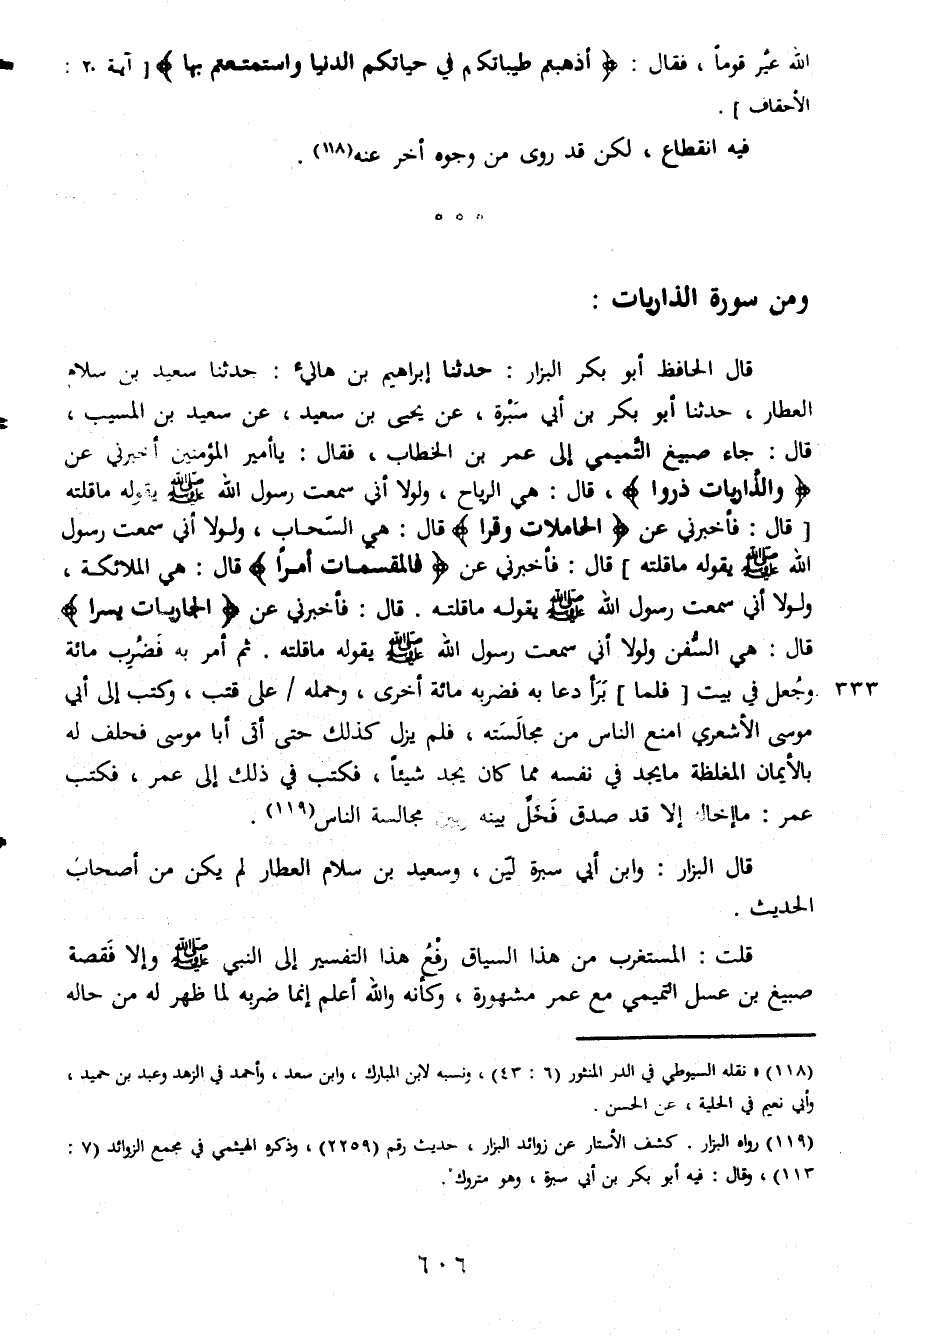 الله عيَّر قوماً ، فقال : ﴿ أذهبتم طيباتكم في حياتكم الدنيا واستمتعتم بها ﴾ [ آية ٢٠ :
الأحقاف ] .
فيه انقطاع ، لكن قد روى من وجوه أخر عنه(١١٨) .
ه ه ه
ومن سورة الذاريات :
قال الحافظ أبو بكر البزار : حدثنا إبراهيم بن هانيء : حدثنا سعيد بن سلام
العطار ، حدثنا أبو بكر بن أبي سَبْرة ، عن يحيى بن سعيد ، عن سعيد بن المسيب ،
قال : جاء صبيغ التَّميمي إلى عمر بن الخطاب ، فقال : ياأمير المؤمنين أخبرني عن
﴿ والذَّاريات ذروا ﴾ ، قال : هي الرياح ، ولولا أني سمعت رسول الله ﷺ يقوله ماقلته
[ قال : فأخبرني عن ﴿ الحاملات وقرا ﴾ قال : هي السّحاب ، ولولا أني سمعت رسول
الله ﷺ يقوله ماقلته ] قال : فأخبرني عن ﴿ فالمقسمات أمراً ﴾ قال : هي الملائكة ،
ولولا أني سمعت رسول الله ﷺ يقوله ماقلته . قال : فأخبرني عن ﴿ الجاريات يسرا ﴾
قال : هي السُّفن ولولا أني سمعت رسول الله ﷺ يقوله ماقلته . ثم أمر به فَضُرِب مائة
وجُعل في بيت [ فلما ] بَرَأ دعا به فضربه مائة أخرى ، وحمله / على قتب ، وكتب إلى أبي ٣٣٣
موسى الأشعري امنع الناس من مجالَسَته ، فلم يزل كذلك حتى أتى أبا موسى فحلف له
بالأيمان المغلظة مايجد في نفسه مما كان يجد شيئاً ، فكتب في ذلك إلى عمر ، فكتب
عمر : ماإخاله إلا قد صدق فَخَلِّ بينه وبين مجالسة الناس(١١٩) .
قال البزار : وابن أبي سبرة ليّن ، وسعيد بن سلام العطار لم يكن من أصحاب
الحديث .
قلت : المستغرب من هذا السياق رفْعُ هذا التفسير إلى النبي ﷺ وإلا فَقصة
صبيغ بن عسل التميمي مع عمر مشهورة ، وكأنه والله أعلم إنما ضربه لما ظهر له من حاله
(١١٨) نقله السيوطي في الدر المنثور (٦ : ٤٣) ، ونسبه لابن المبارك ، وابن سعد ، وأحمد في الزهد وعبد بن حميد ،
وأبي نعيم في الحلية ، عن الحسن .
(١١٩) رواه البزار . كشف الأستار عن زوائد البزار ، حديث رقم (٢٢٥٩) ، وذكره الهيثمي في مجمع الزوائد (٧ :
١١٣) ، وقال : فيه أبو بكر بن أبي سبرة ، وهو متروك .
٦٠٦